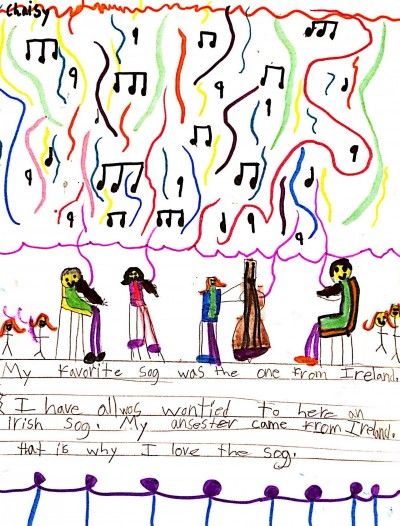 Chaisy
My favorite sog was the one from Ireland.
I have allwos wontied to here an
irish sog. My ansester came from Ireland.
that is why I love the sog.